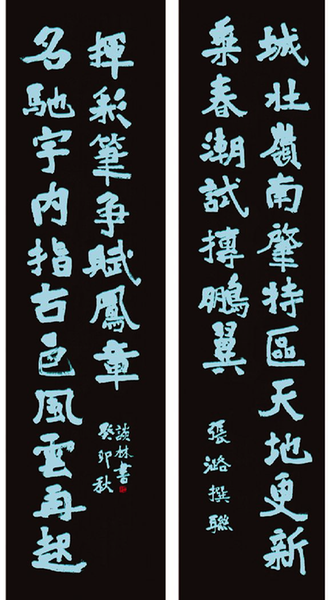 城壯嶺南肇特區天地更新
乘春潮試摶鵬翼
張潞撰聯
名馳宇内指古邑風雲再起
揮彩筆争賦鳳章
談林書
癸卯秋